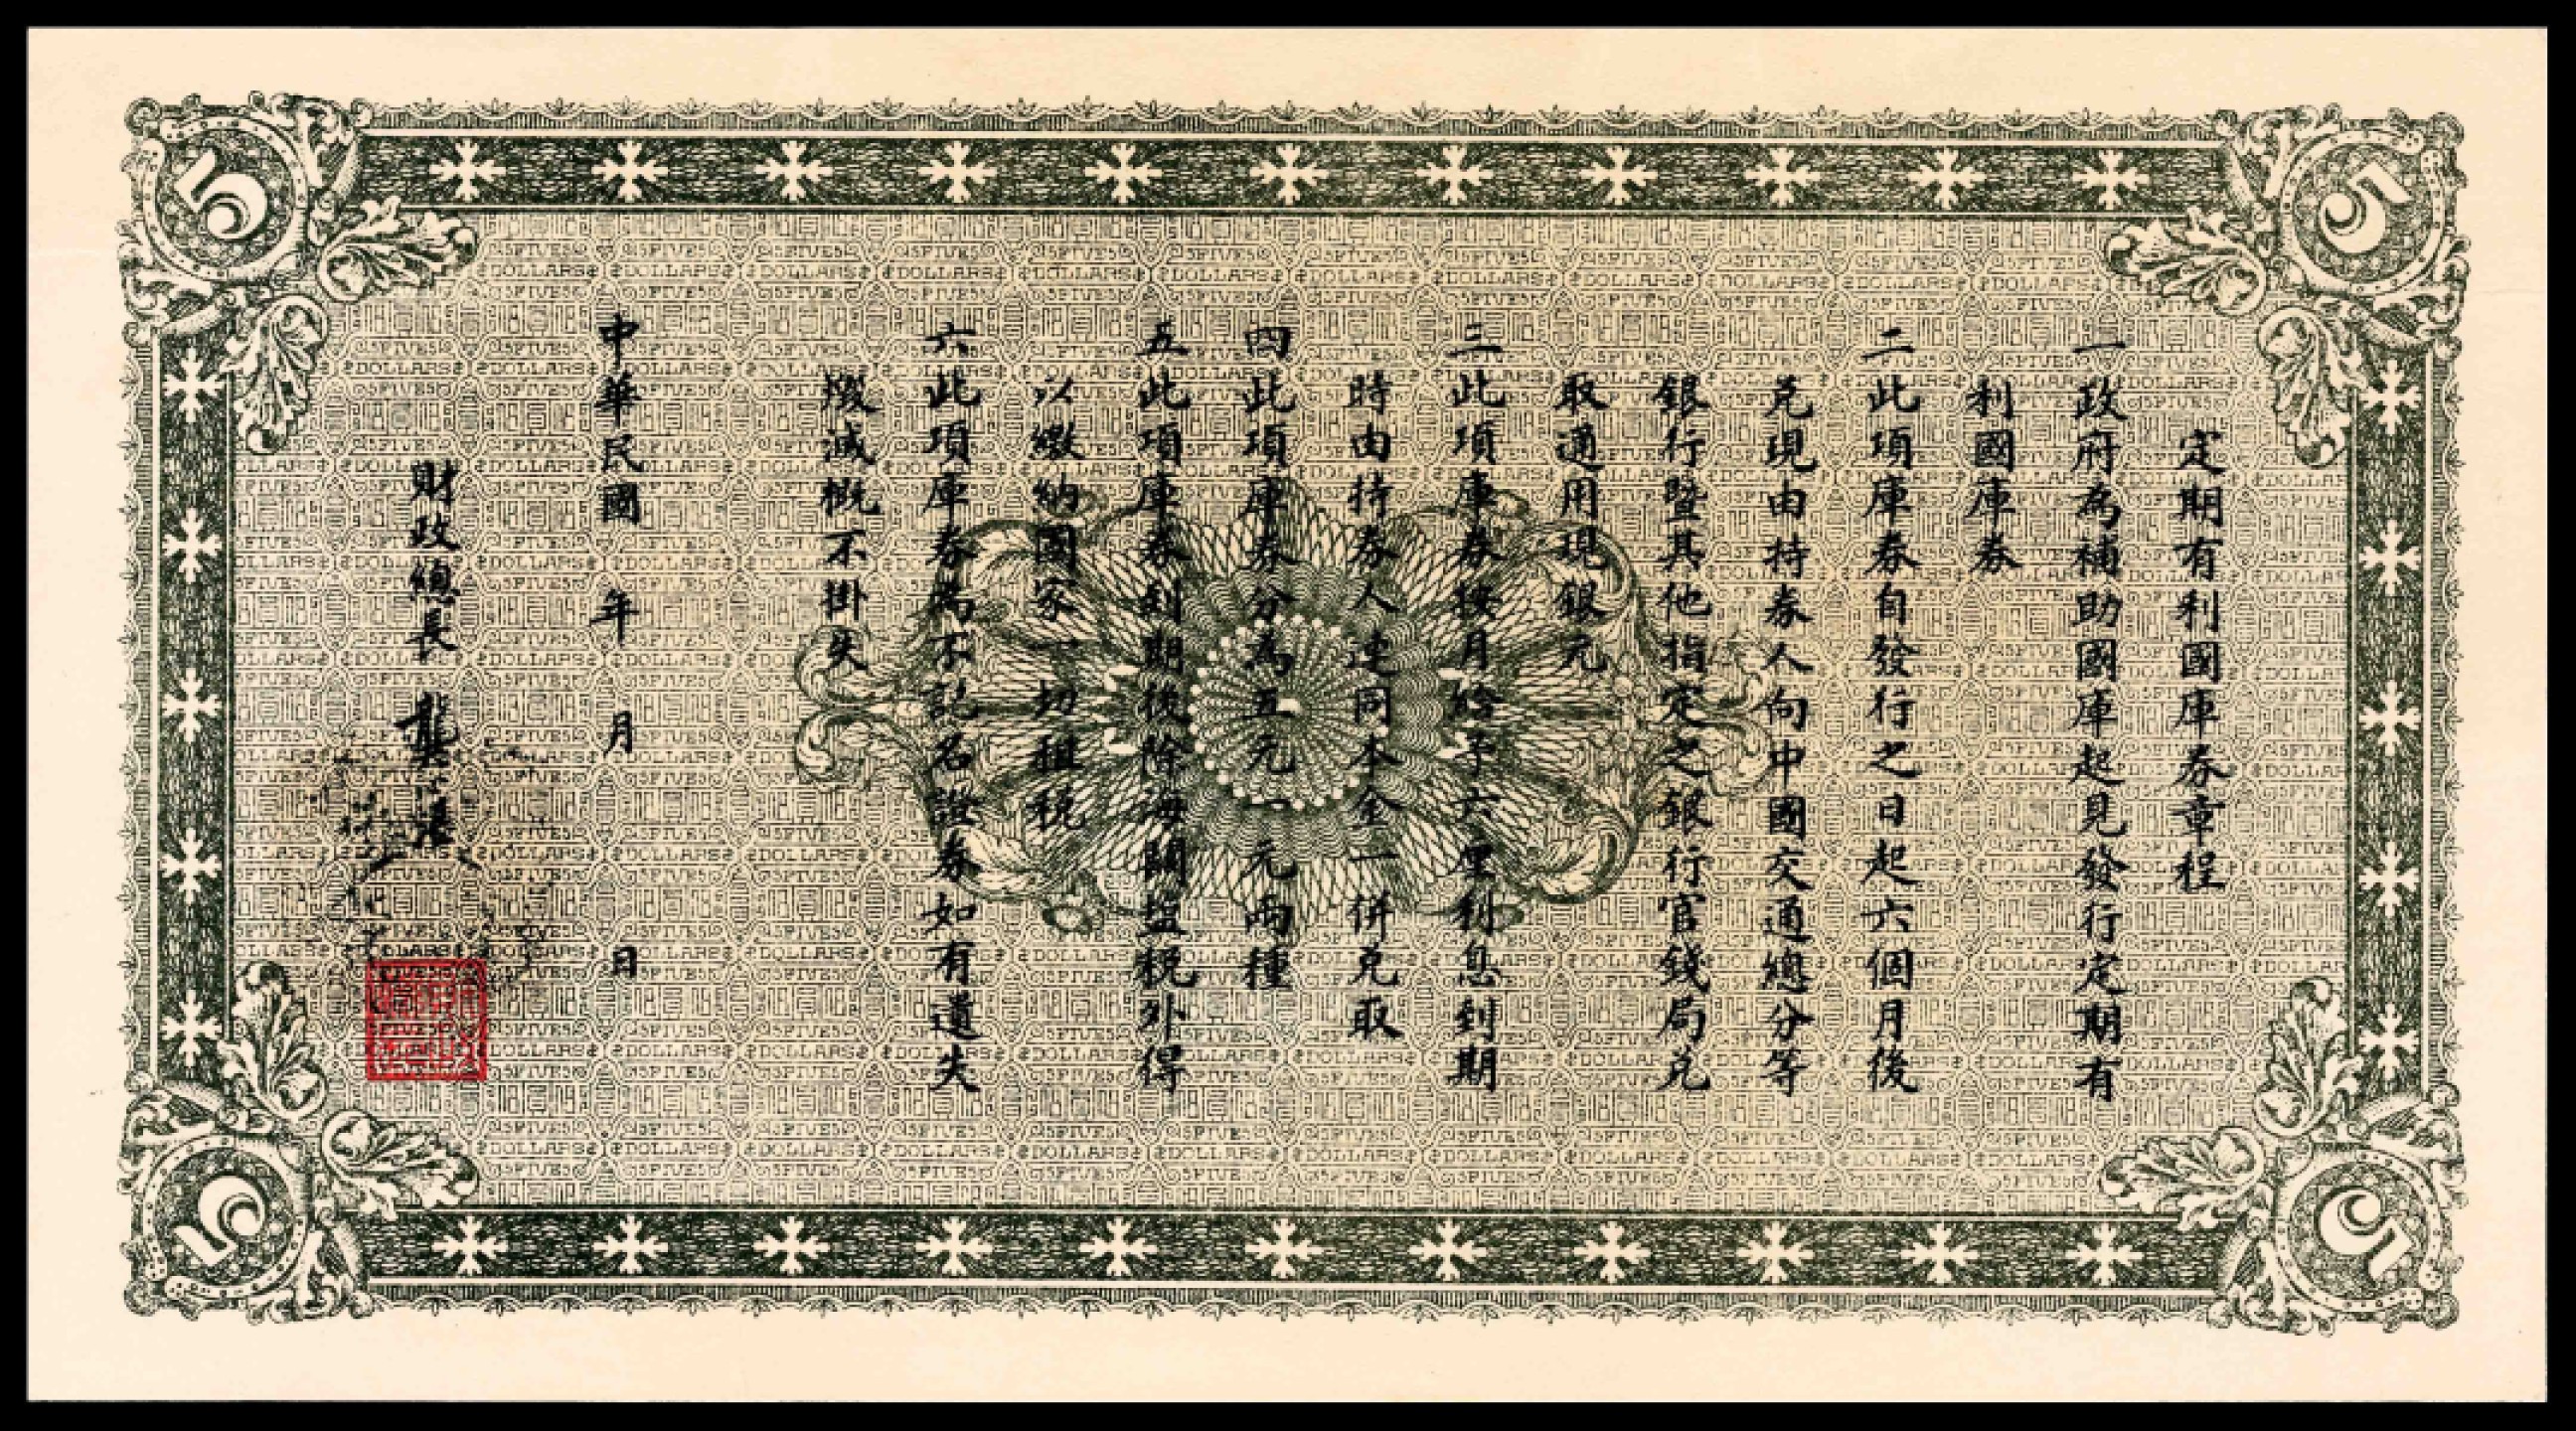 定期有利國庫券章程
一政府為補助國庫起見發行定期有
利國庫券
二此項庫券自發行之日起六個月後
兑現由持券人向中國交通總分等
銀行暨其他指定之銀行官錢局兑
取通用現銀元
三此項庫券按月給予六厘利息到期
時由持券人連同本金一併兑取
四此項庫券分為五元一元兩種
五此項庫券到期後除海關鹽稅外得
以繳納國家一切租稅
六此項庫券為不記名證券如有遺失
燬滅概不掛失
中華民國 年 月 日
財政總長 龔
5
5
5
5
FIVE
DOLLARS